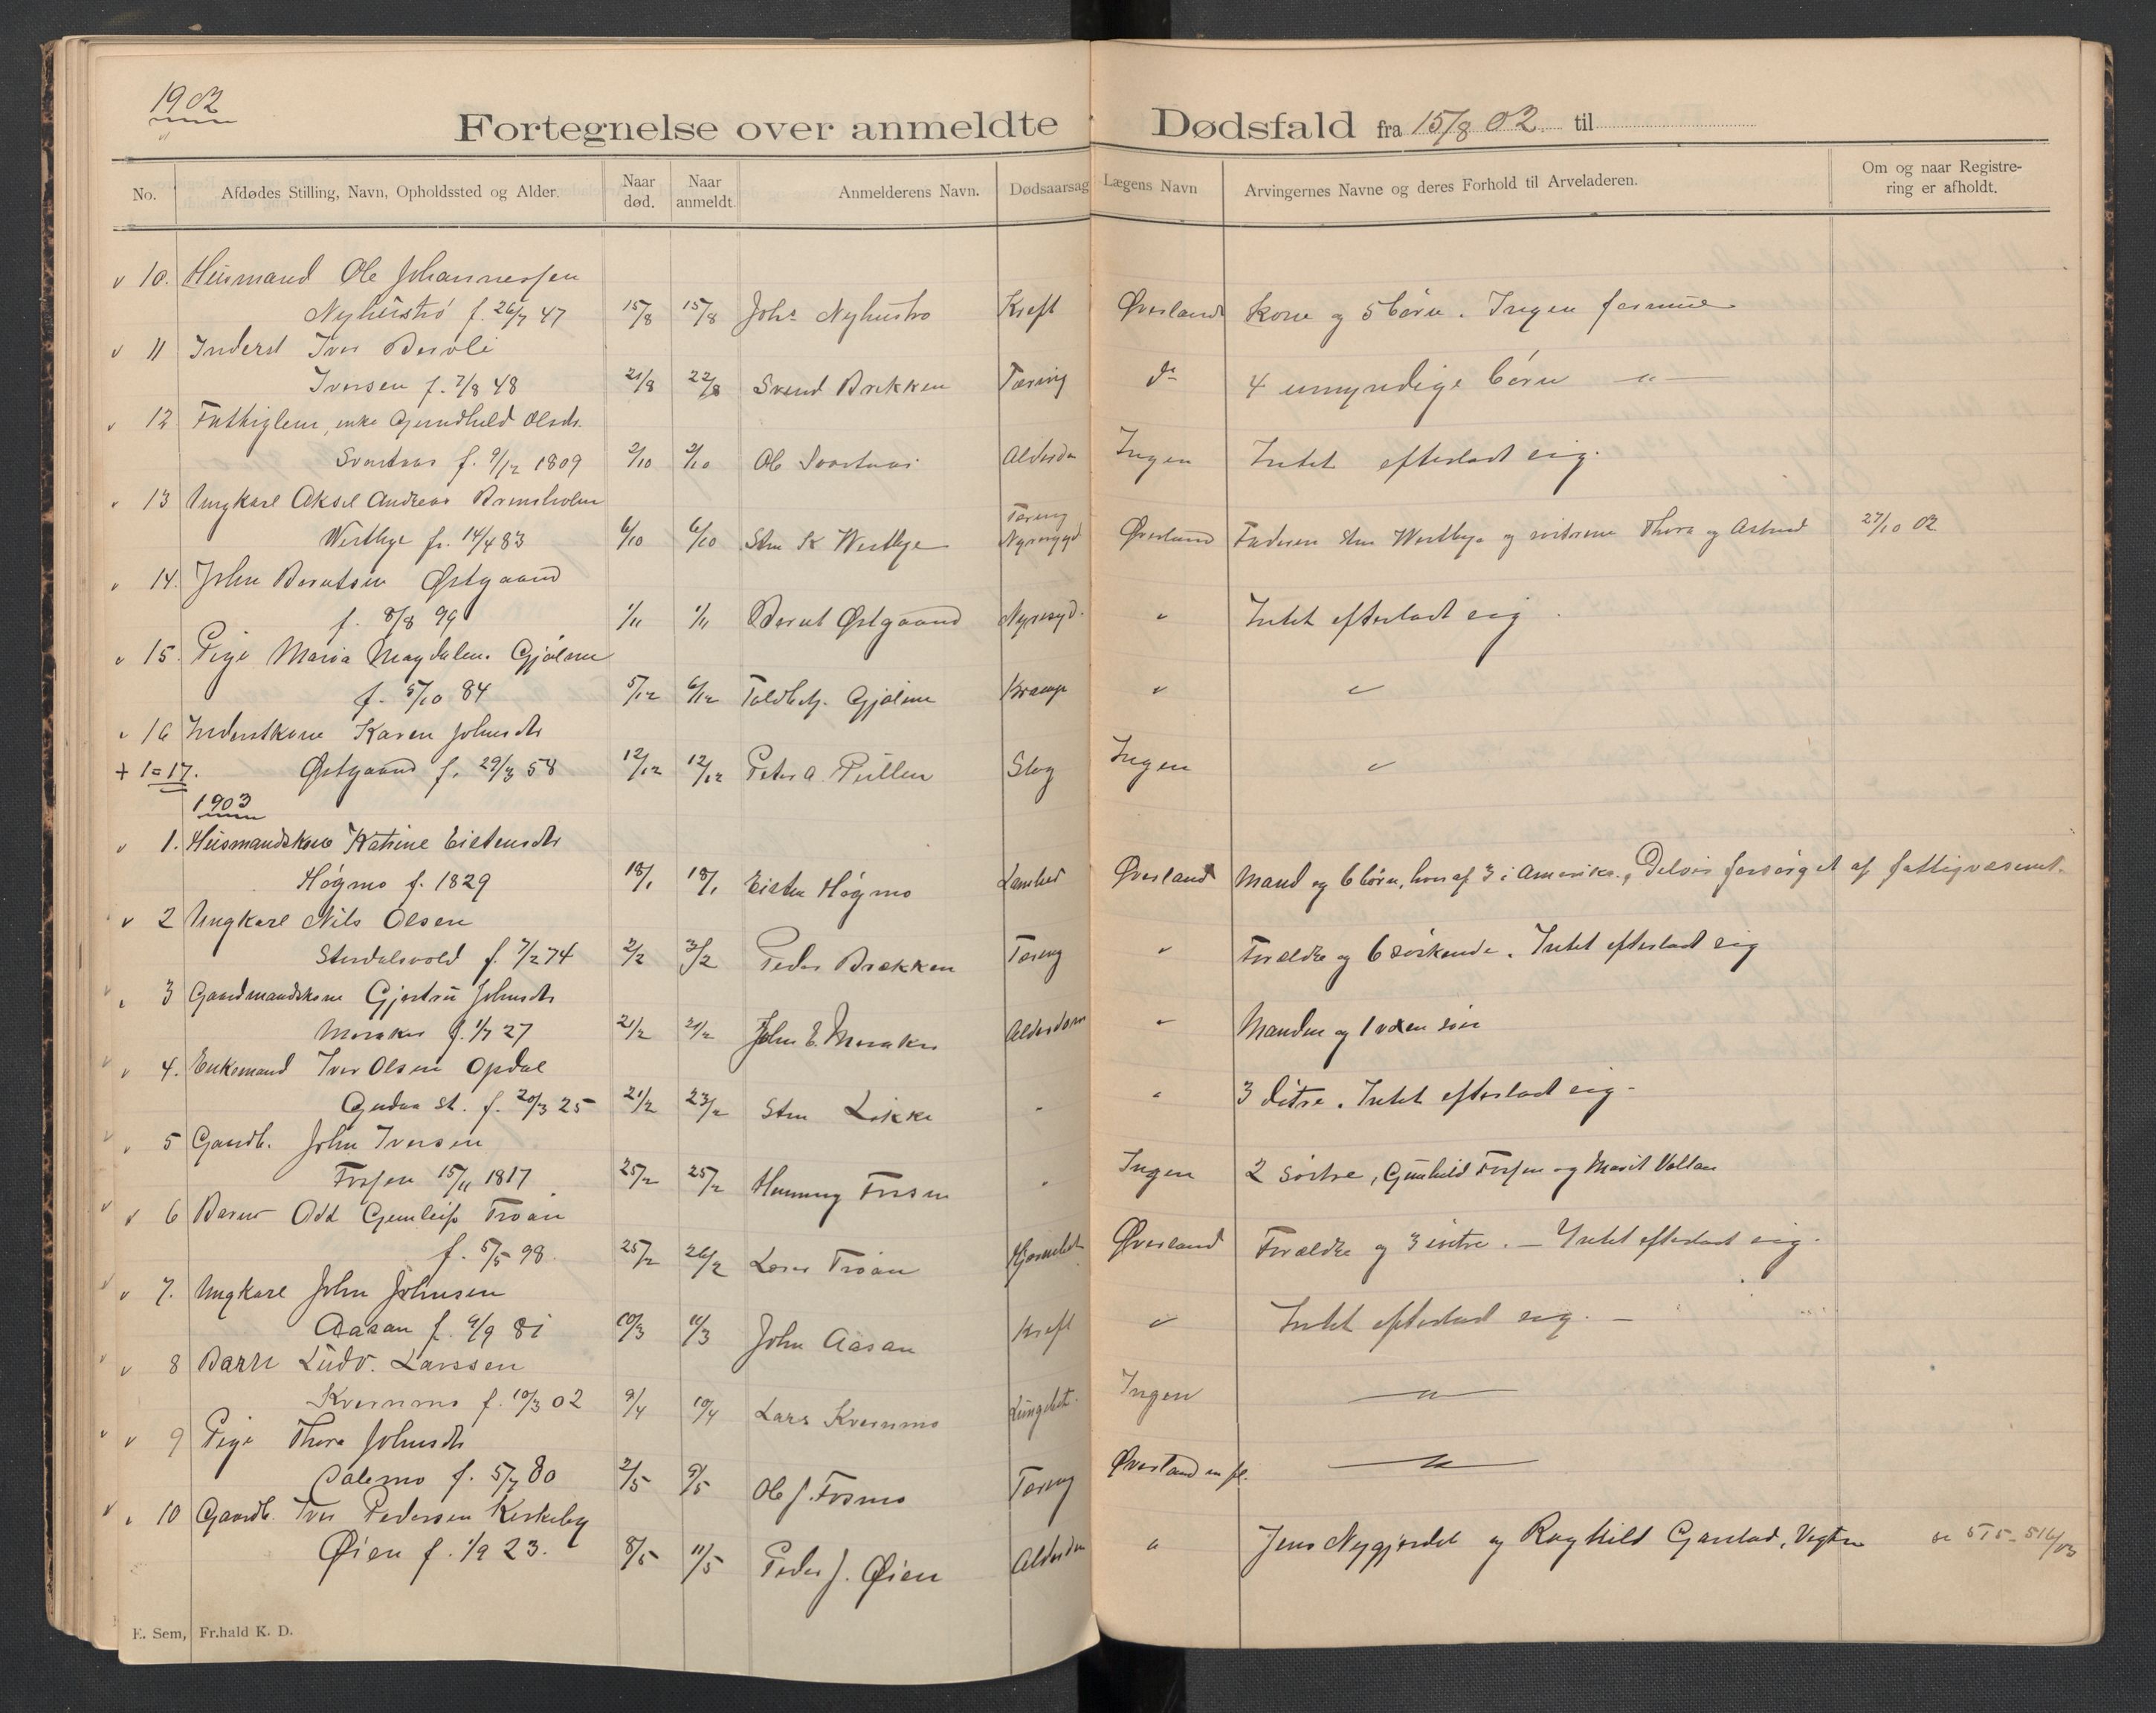 1902
Fortegnelse over anmeldte Dødsfald fra 15/8 02 til
No. Afdødes Stilling, Navn, Opholdssted og Alder. Naar død. Naar anmeldt. Anmelderens Navn. Dødsaarsag Lægens Navn Arvingernes Navne og deres Forhold til Arveladeren. Om og naar Registrering er afholdt.
v 10. Husmand Ole Johannessen
Nyhustrø f. 26/7 47 15/8 15/8 Johs Nyhustrø Kræft Øverland Kone og 5 børn. Ingen formue
v 11 Inderst Iver
Iversen f. 7/8 48 21/8 22/8 Svend Brækken Tæring do 4 umyndige børn — " —
v 12 Fattiglem, enke Gundhild Olsdt.
Svartaas f. 9/12 1809 2/10 2/10 Ole Svartaas Alderdom Ingen Intet efterladt sig.
v 13 Ungkarl Aksel Andreas
Westbye f. 14/4 83 6/10 6/10 Sten K Westbye Tæring Øverland Faderen Sten Westbye og søstrene Thora og Astrid 27/10 02
v 14. John Berntsen Østgaard
f. 8/8 99 1/11 1/11 Bernt Østgaard Nyresyd. " Intet efterladt sig.
v 15. Pige Maria Magdalena Gjølme
f. 5/10 84 5/12 6/12 Toldbetj. Gjølme Krampe " "
v 16 Inderstkone Karen Johnsdt
+ 1=17. Østgaard f. 29/3 58 12/12 12/12 Peter A. Slag Ingen "
1903
v 1. Husmandskone Katrine Eistensdt
Høgmo f. 1829 18/1 18/1 Eisten Høgmo Øverland Mand og 6 børn, hvoraf 3 i Amerika. Delvis forsørget af fattigvæsenet.
v 2 Ungkarl Nils Olsen
Stordalsvold f. 7/2 74 2/2 3/2 Peder Brækken Tæring " Forældre og 6 søskende. Intet efterladt sig
v 3 Gaardmandskone Gjertru Johnsdt
Meraker f. 1/7 27 21/2 21/2 John E. Meraker Alderdom " Manden og 1 voxen søn
v 4. Enkemand Iver Olsen Opdal
Gudaa st. f. 20/3 25 21/2 23/2 Sten Løkke " " 3 døtre. Intet efterladt sig -
v 5 Gaardb. John Iversen
Forsen 15/11 1817 25/2 25/2 Henning Forsen " Ingen 2 søstre, Gunhild Forsen og Marit Vollan
v 6 Barn Odd Gunleif Troan
f. 5/5 98. 25/2 26/2 Troan Øverland Forældre og 3 søstre. — Intet efterladt sig.
v 7. Ungkarl John Johnsen
Aasan f. 9/9 81 10/3 11/3 John Aasan Kræft " Intet efterladt sig. —
v 8 Barn Ludv. Larssen
Kvernmo f. 10/3 02 9/4 10/4 Lars Kvernmo Ingen — " —
v 9 Pige Thora Johnsdt
Dalemo f. 5/7 80 2/5 9/5 Ole J. Fosmo Tæring Øverland m fl. — " —
v 10 Gaardb. Iver Pedersen Kirkeby
Øien f. 1/9 23. 8/5 11/5 Peder J. Øien Alderdom " Jens Nygjerdet og Raghild Garstad, se 515-516/03
E. Sem, Fr.hald K. D.